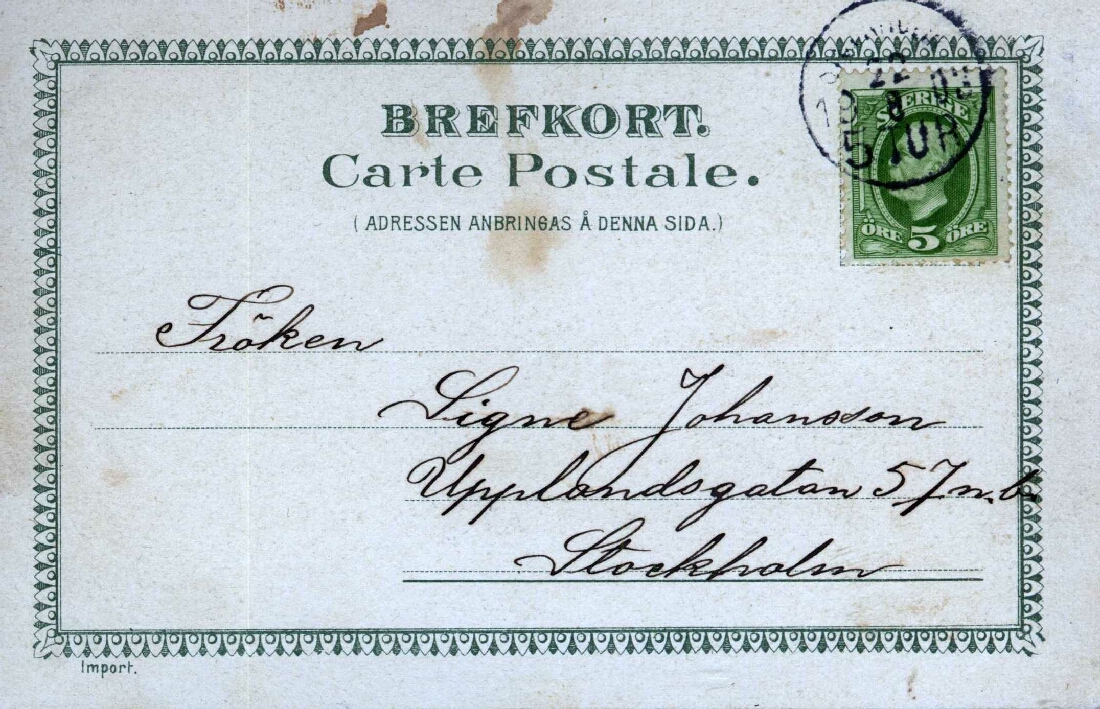 BREFKORT.
Carte Postale.
(ADRESSEN ANBRINGAS Å DENNA SIDA.)
22
19 8 03
5 TUR
SVERIGE
ÖRE 5 ÖRE
Fröken
Signe Johansson
Upplandsgatan 57 n.b.
Stockholm
Import.